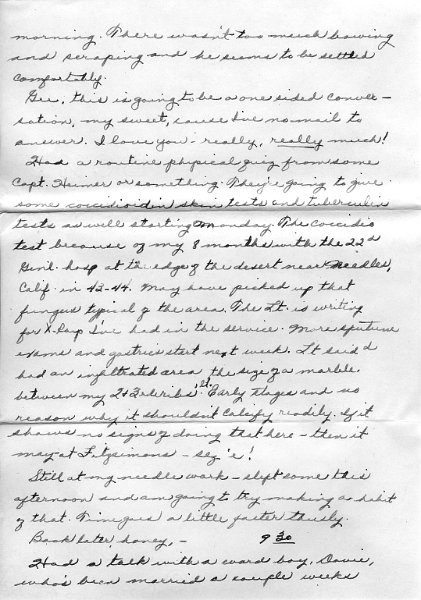 morning. There wasn't too much bowing
and scraping and he seems to be settled
comfortably.
Gee, this is going to be a one sided conver-
sation, my sweet, cause I've no mail to
answer. I love you - really, really much!
Had a routine physical going from some
Capt. Heiner or something. They're going to give
some coccidioidin skin tests and tuberculin
tests as well starting Monday. The coccidio
test because of my 8 months with the 22d
Gen'l. hosp at the edge of the desert near Needles,
Calif. in 43-44. May have picked up that
fungus typical of the area. The Lt. is writing
for X-Rays I've had in the service. More sputum
exams and gastrics start next week. Lt said I'd
had an infiltrated area the size of a marble
between my 2 & 3d ribs lt. Early stages and no
reason why it shouldn't calcify readily. If it
shows no signs of doing that here - then it
may at Fitzsimons - sez 'e!
Still at my needle work - slept some this
afternoon and am going to try making a habit
of that. Time goes a little faster thusly.
Back later, honey, - 9 30
Had a talk with a ward boy, Davie,
who's been married a couple weeks